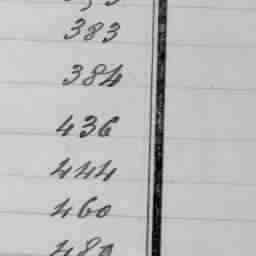 383
384
436
444
460
480